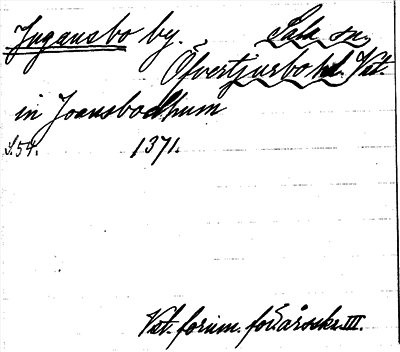 Jugansbo by. Sala sn.
Öfvertjurbo hd. Vst.
in Joansbodhum
S. 54. 1371.
Vst. fornm. för. årsskr. III.